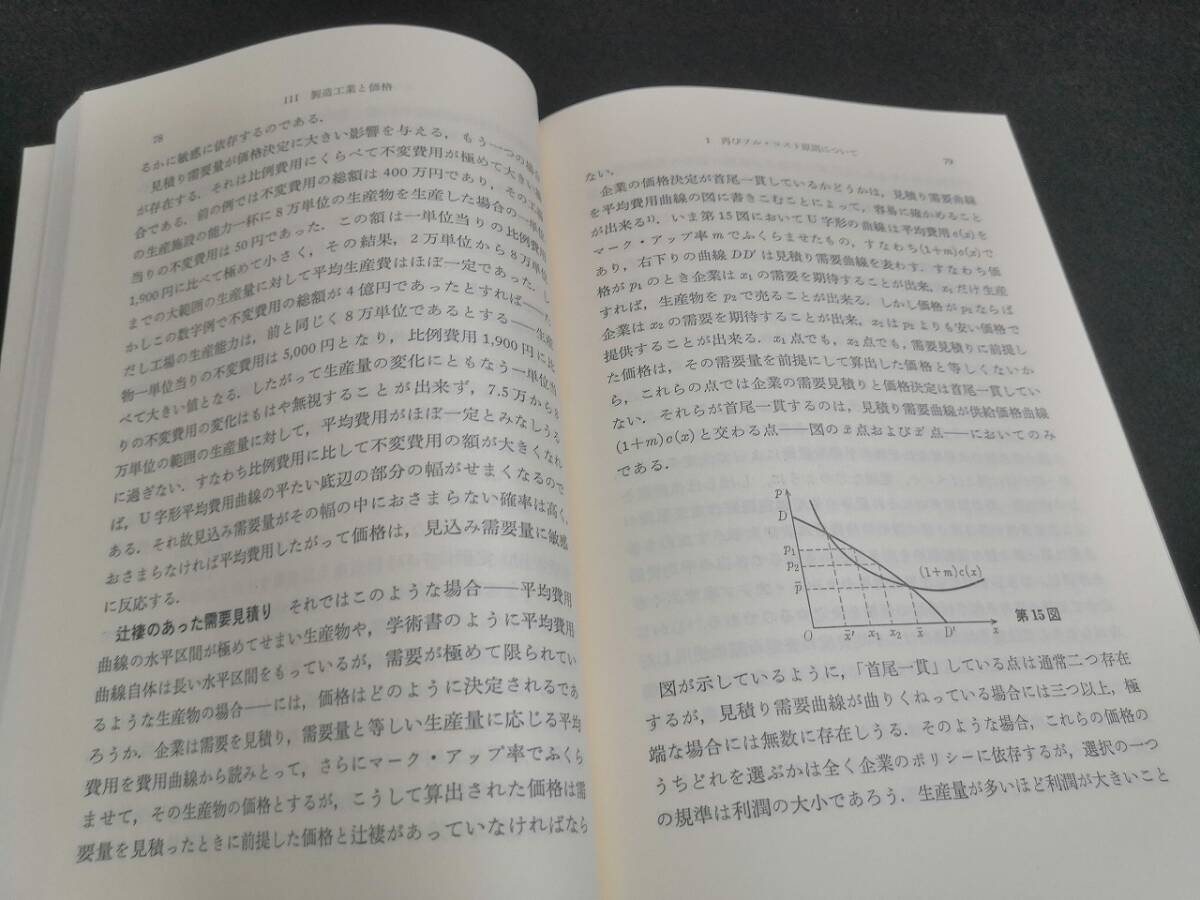 III 製造工業と価格
78
るかに敏感に依存するのである.
見積り需要量が価格決定に大きい影響を与える,もう一つの場合
が存在する.それは比例費用にくらべて不変費用が極めて大きい場
合である.前の例では不変費用の総額は400万円であり,その工場
の生産施設の能力一杯に8万単位の生産物を生産した場合の一単位
当りの不変費用は50円であった.この額は一単位当りの比例費用
1,900円に比べて極めて小さく,その結果,2万単位から8万単位
までの大範囲の生産量に対して平均生産費はほぼ一定であった.し
かしこの数字例で不変費用の総額が4億円であったとすれば——た
だし工場の生産能力は,前と同じく8万単位であるとする——生産
物一単位当りの不変費用は5,000円となり,比例費用1,900円に比
べて大きい値となる.したがって生産量の変化にともなう一単位当
りの不変費用の変化はもはや無視することが出来ず,7.5万から8
万単位の範囲の生産量に対して,平均費用がほぼ一定とみなしうる
に過ぎない.すなわち比例費用に比して不変費用の額が大きくなれ
ば,U字形平均費用曲線の平たい底辺の部分の幅がせまくなるので
ある.それ故見込み需要量がその幅の中におさまらない確率は高く,
おさまらなければ平均費用したがって価格は,見込み需要量に敏感
に反応する.
辻褄のあった需要見積り それではこのような場合——平均費用
曲線の水平区間が極めてせまい生産物や,学術書のように平均費用
曲線自体は長い水平区間をもっているが,需要が極めて限られてい
るような生産物の場合——には,価格はどのように決定されるであ
ろうか.企業は需要を見積り,需要量と等しい生産量に応じる平均
費用を費用曲線から読みとって,さらにマーク・アップ率でふくら
ませて,その生産物の価格とするが,こうして算出された価格は需
要量を見積ったときに前提した価格と辻褄があっていなければなら
1 再びフル・コスト原則について
79
ない.
企業の価格決定が首尾一貫しているかどうかは,見積り需要曲線
を平均費用曲線の図に書きこむことによって,容易に確かめること
が出来る1).いま第15図においてU字形の曲線は平均費用c(x)を
マーク・アップ率mでふくらませたもの,すなわち(1+m)c(x)で
あり,右下りの曲線DD′は見積り需要曲線を表わす.すなわち価
格がp₁のとき企業はx₁の需要を期待することが出来,x₁だけ生産
すれば,生産物をp₂で売ることが出来る.しかし価格がp₂ならば
企業はx₂の需要を期待することが出来,x₂はp₂よりも安い価格で
提供することが出来る.x₁点でも,x₂点でも,需要見積りに前提し
た価格は,その需要量を前提にして算出した価格と等しくないか
ら,これらの点では企業の需要見積りと価格決定は首尾一貫してい
ない.それらが首尾一貫するのは,見積り需要曲線が供給価格曲線
(1+m)c(x)と交わる点——図のx̄点およびx̄′点——においてのみ
である.
p
D
p₁
p₂
p̄
(1+m)c(x)
O
x̄′
x₁
x₂
x̄
D′
x
第15図
図が示しているように,「首尾一貫」している点は通常二つ存在
するが,見積り需要曲線が曲りくねっている場合には三つ以上,極
端な場合には無数に存在しうる.そのような場合,これらの価格の
うちどれを選ぶかは全く企業のポリシーに依存するが,選択の一つ
の規準は利潤の大小であろう.生産量が多いほど利潤が大きいこと